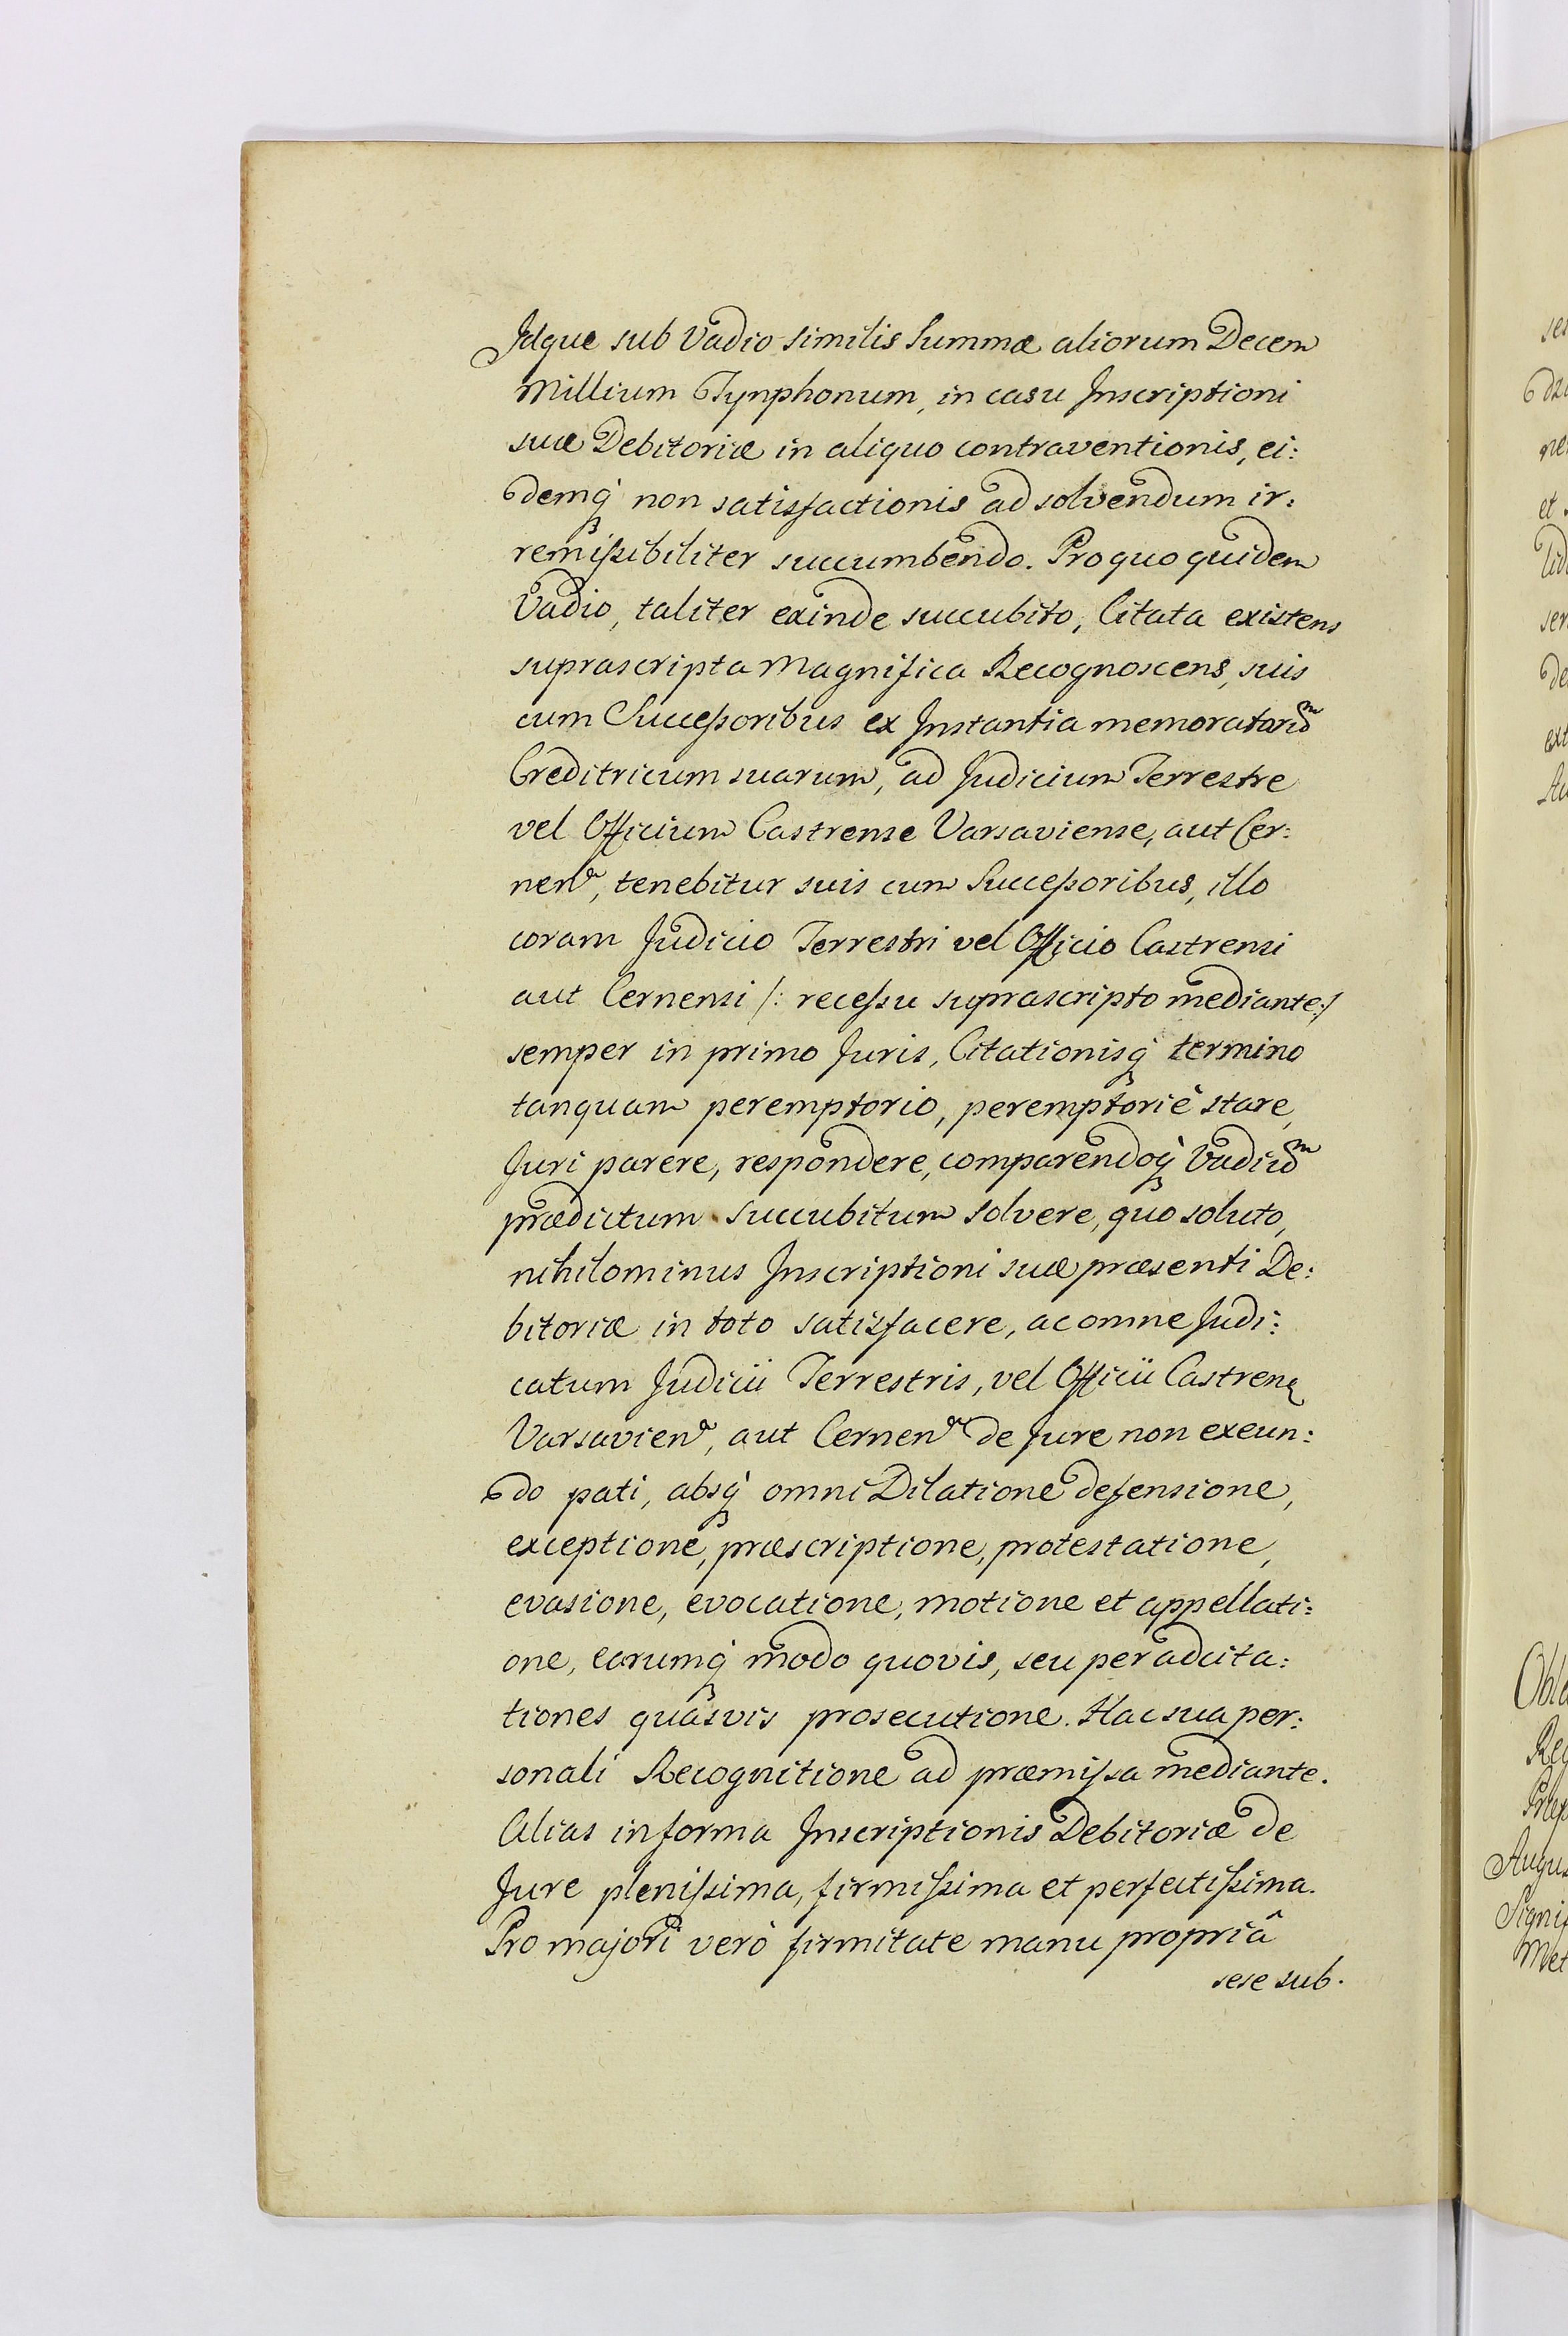 Idque sub Vadio similis Summæ aliorum Decem
Millium Tynphonum, in casu Inscriptioni
suæ Debitoriæ in aliquo contraventionis, ei:
demq; non satisfactionis ad solvendum ir:
remissibiliter succumbendo. Pro quo quidem
Vadio, taliter exinde succubito, Citata existens
suprascripta Magnifica Recognoscens, suis
cum Successoribus ex Instantia memoratarũ
Creditricum suarum, ad Judicium Terrestre
vel Officium Castrense Varsaviense, aut Cer:
nen, tenebitur suis cum Successoribus, illo
coram Judicio Terrestri vel Officio Castrensi
aut Cernensi /: recessu suprascripto mediante :/
semper in primo Juris, Citationisq; termino
tanquam peremptorio, peremptoriè stare,
Juri parere, respondere, comparendoq; Vadiũ
prædictum succubitum solvere, quo soluto,
nihilominus Inscriptioni suæ præsenti De:
bitoriæ in toto satisfacere, ac omne Judi:
catum Judicii Terrestris, vel Officii Castren
Varsavien, aut Cernen de Jure non exeun:
do pati, absq; omni Dilatione defensione,
exceptione, præscriptione, protestatione,
evasione, evocatione, motione et appellati:
one, earumq; modo quovis, seu per adcita:
tiones quasvis prosecutione. Hac sua per:
sonali Recognitione ad præmissa mediante.
Alias in forma Inscriptionis Debitoriæ de
Jure plenissima, firmissima et perfectissima.
Pro majori verò firmitate manu propriâ
sese sub.